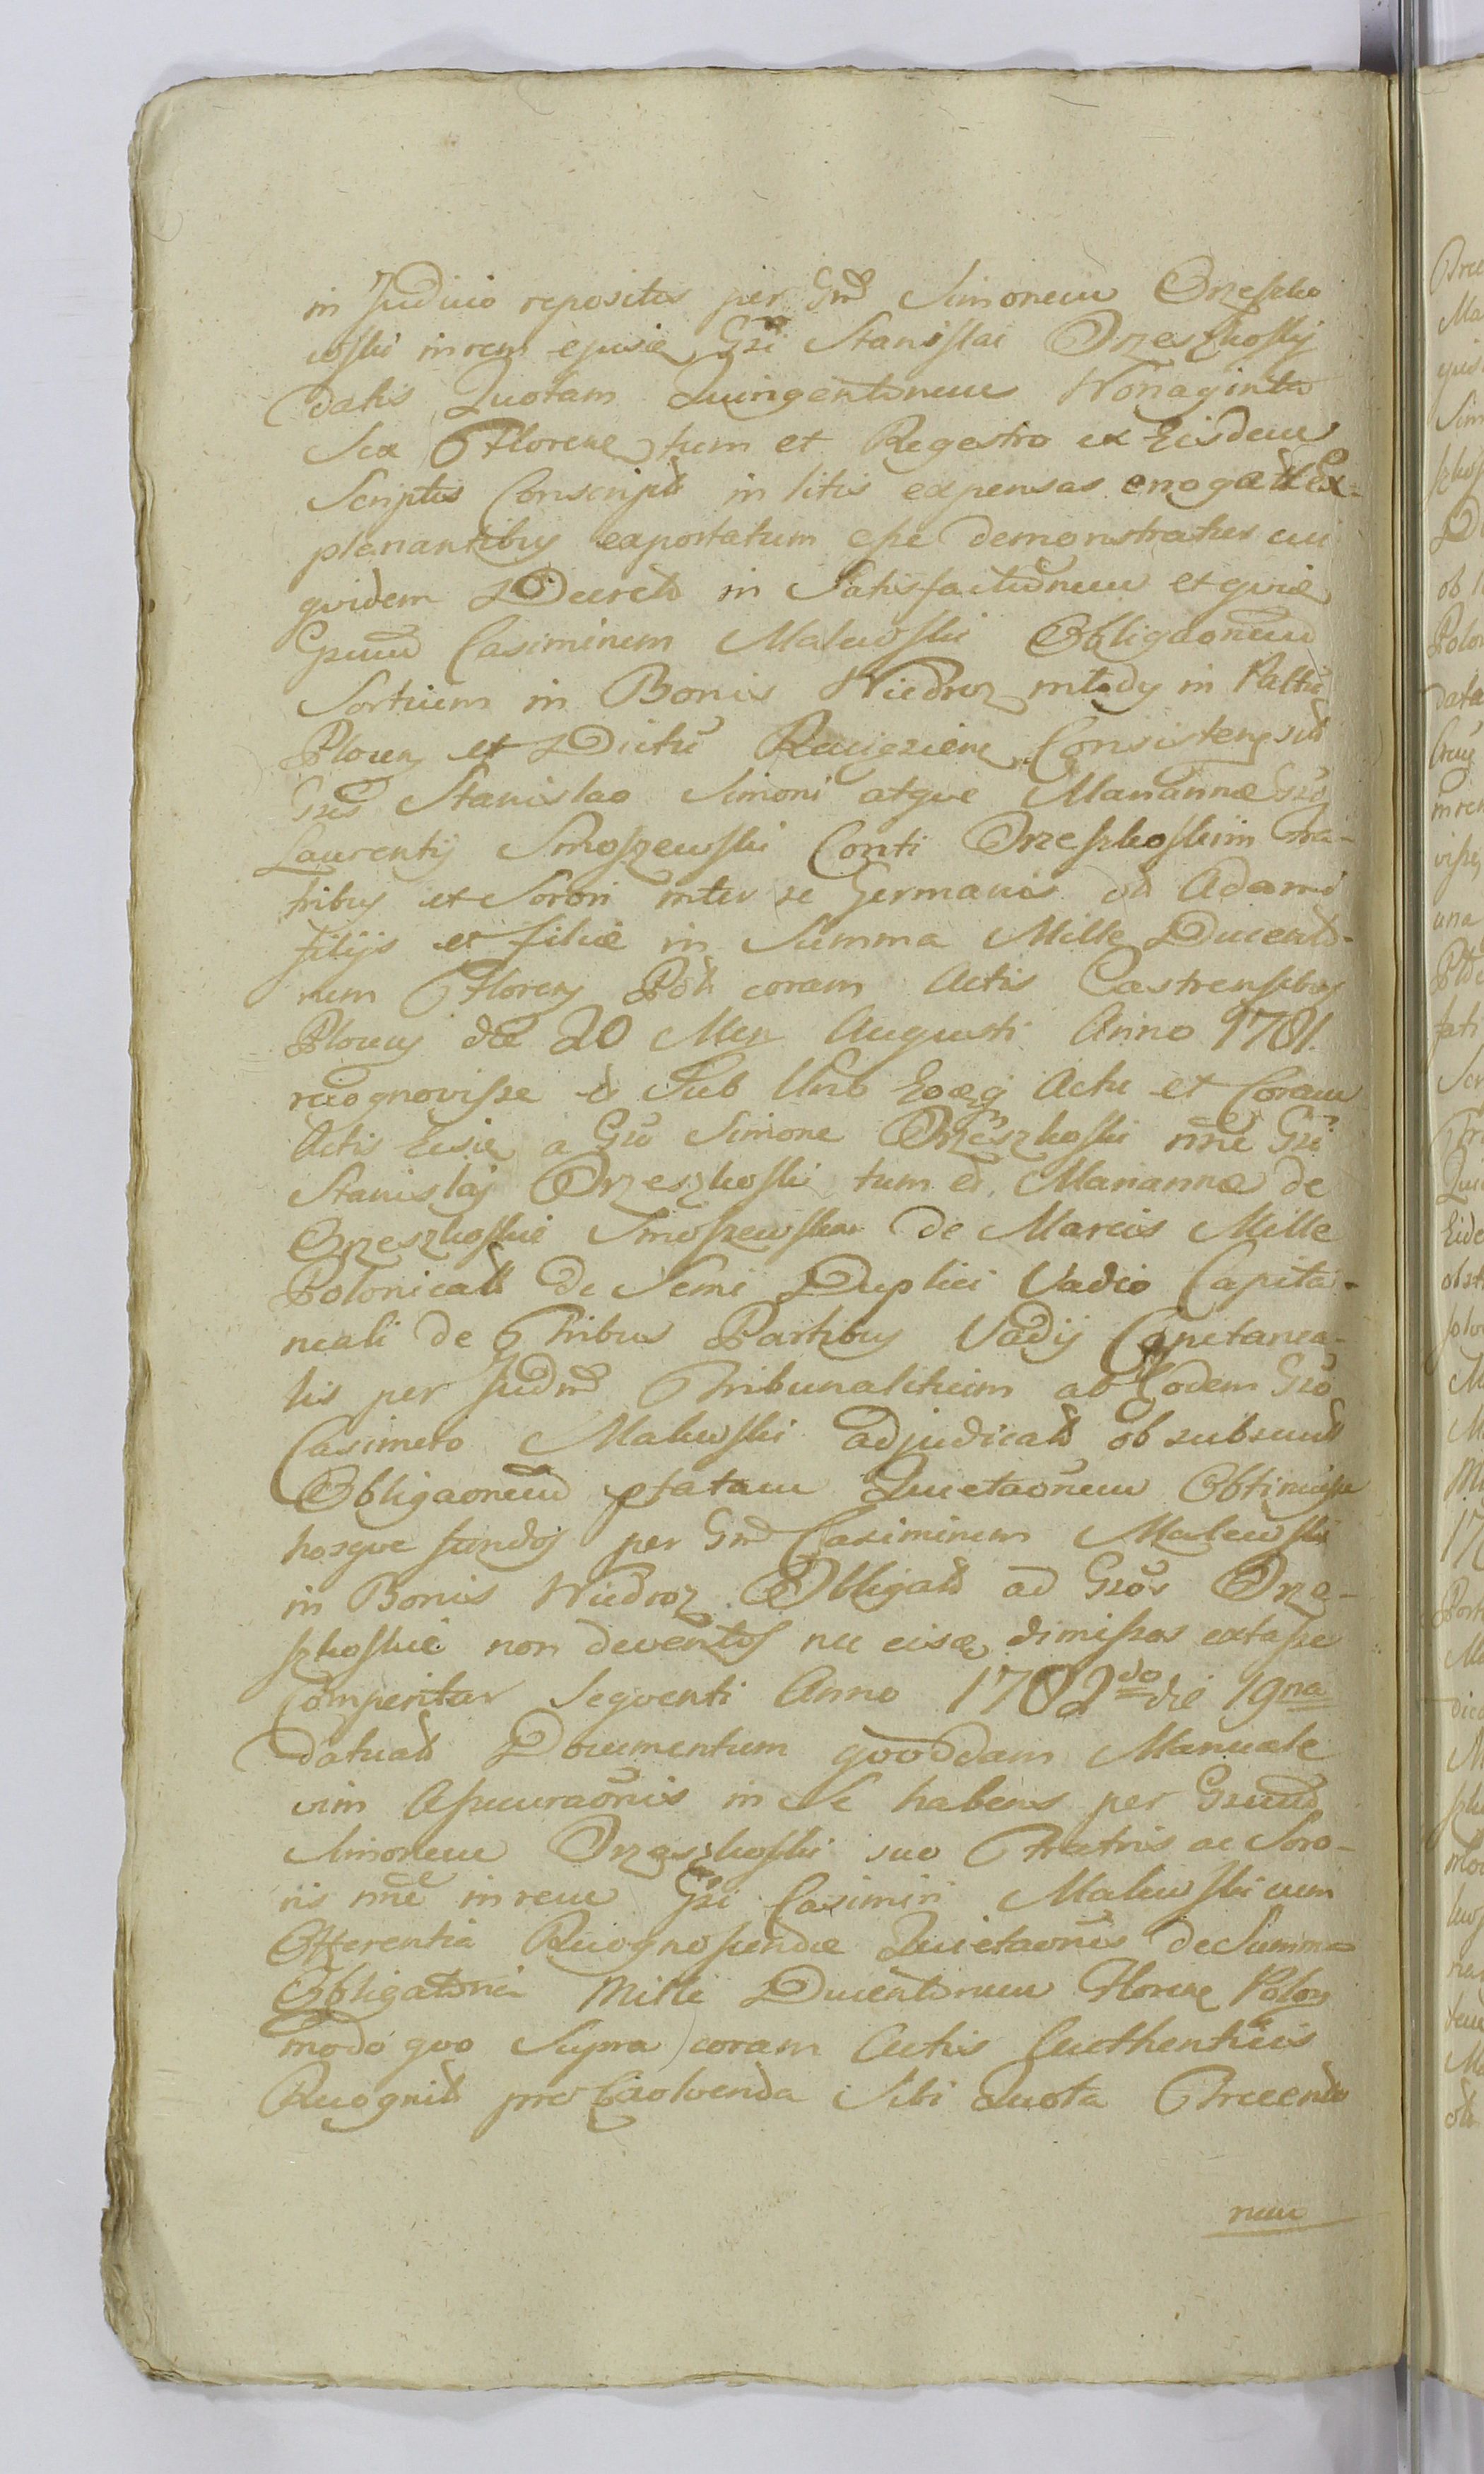 in Judicio repositis per Gm̃ Simonem Orzeszko
wski in rem ejusdem Gzi Stanislai Orzeszkoskj
datis Quotam Quingentorum Nonaginta
Sex Floren tum et Regestro ex Eisdem
Scriptis Conscripto in litis expensas erogat Ex-
planantibus exportatum esse demonstratur cui
quidem Decreto in Satisfactionem et quia
Gzum Casimirum Malewski Obligaonem
Sortium in Bonis Niedroz młody in Palttu
Plocen et Dictu Raciązien Consisten
Gzis Stanislao Simoni atque Mariannæ Gzo
Laurentij Smoszewski Conti Orzeszkoskim Fra-
tribus et Sorori inter se Germanis olim Adami
filijs et filiæ in Summa Mille Ducento-
rum Floren Pol coram Actis Castrensibus
Plocen die 20 Men Augusti Anno 1781
recognovisse et Sub Uno Eoq Actu et Coram
Actis Eisdem a Gzo Simone Orzeszkoski nne Gzi
Stanislaj Orzeszkoski tum et Mariannæ de
Orzeszkoskie Smoszewska de Marcis Mille
Polonicali de Semi Duplici Vadio Capita-
neali de Tribus Partibus Vadij Capitanea-
lis per Judm Tribunalitium ab Eodem Gzo
Casimiro Malewski adjudicat ob subsecut
Obligaonem pfatam Quietaonem Obtinuisse
hosque fundos per Gm Casimirum Malewski
in Bonis Niedroz Obligat ad Gzos Orze-
szkoskie non deventos nec eisdem dimissos extasse
Comperitur Sequenti Anno 1782do die 19na
datuat Documentum quoddam Manuale
vim Assecuraonis in Se habens per Gzum
Simonem Orzeszkoski suo Fratris ac Soro-
ris nne in rem Gzi Casimiri Malewski cum
Offerentia Recognoscendæ Quietaonis de Summa
Obligatoria Mille Ducentorum Floren Polon
modo quo Supra coram Actis Authenticis
Recognit pro Exolvenda Sibi Quota Trecento
rum